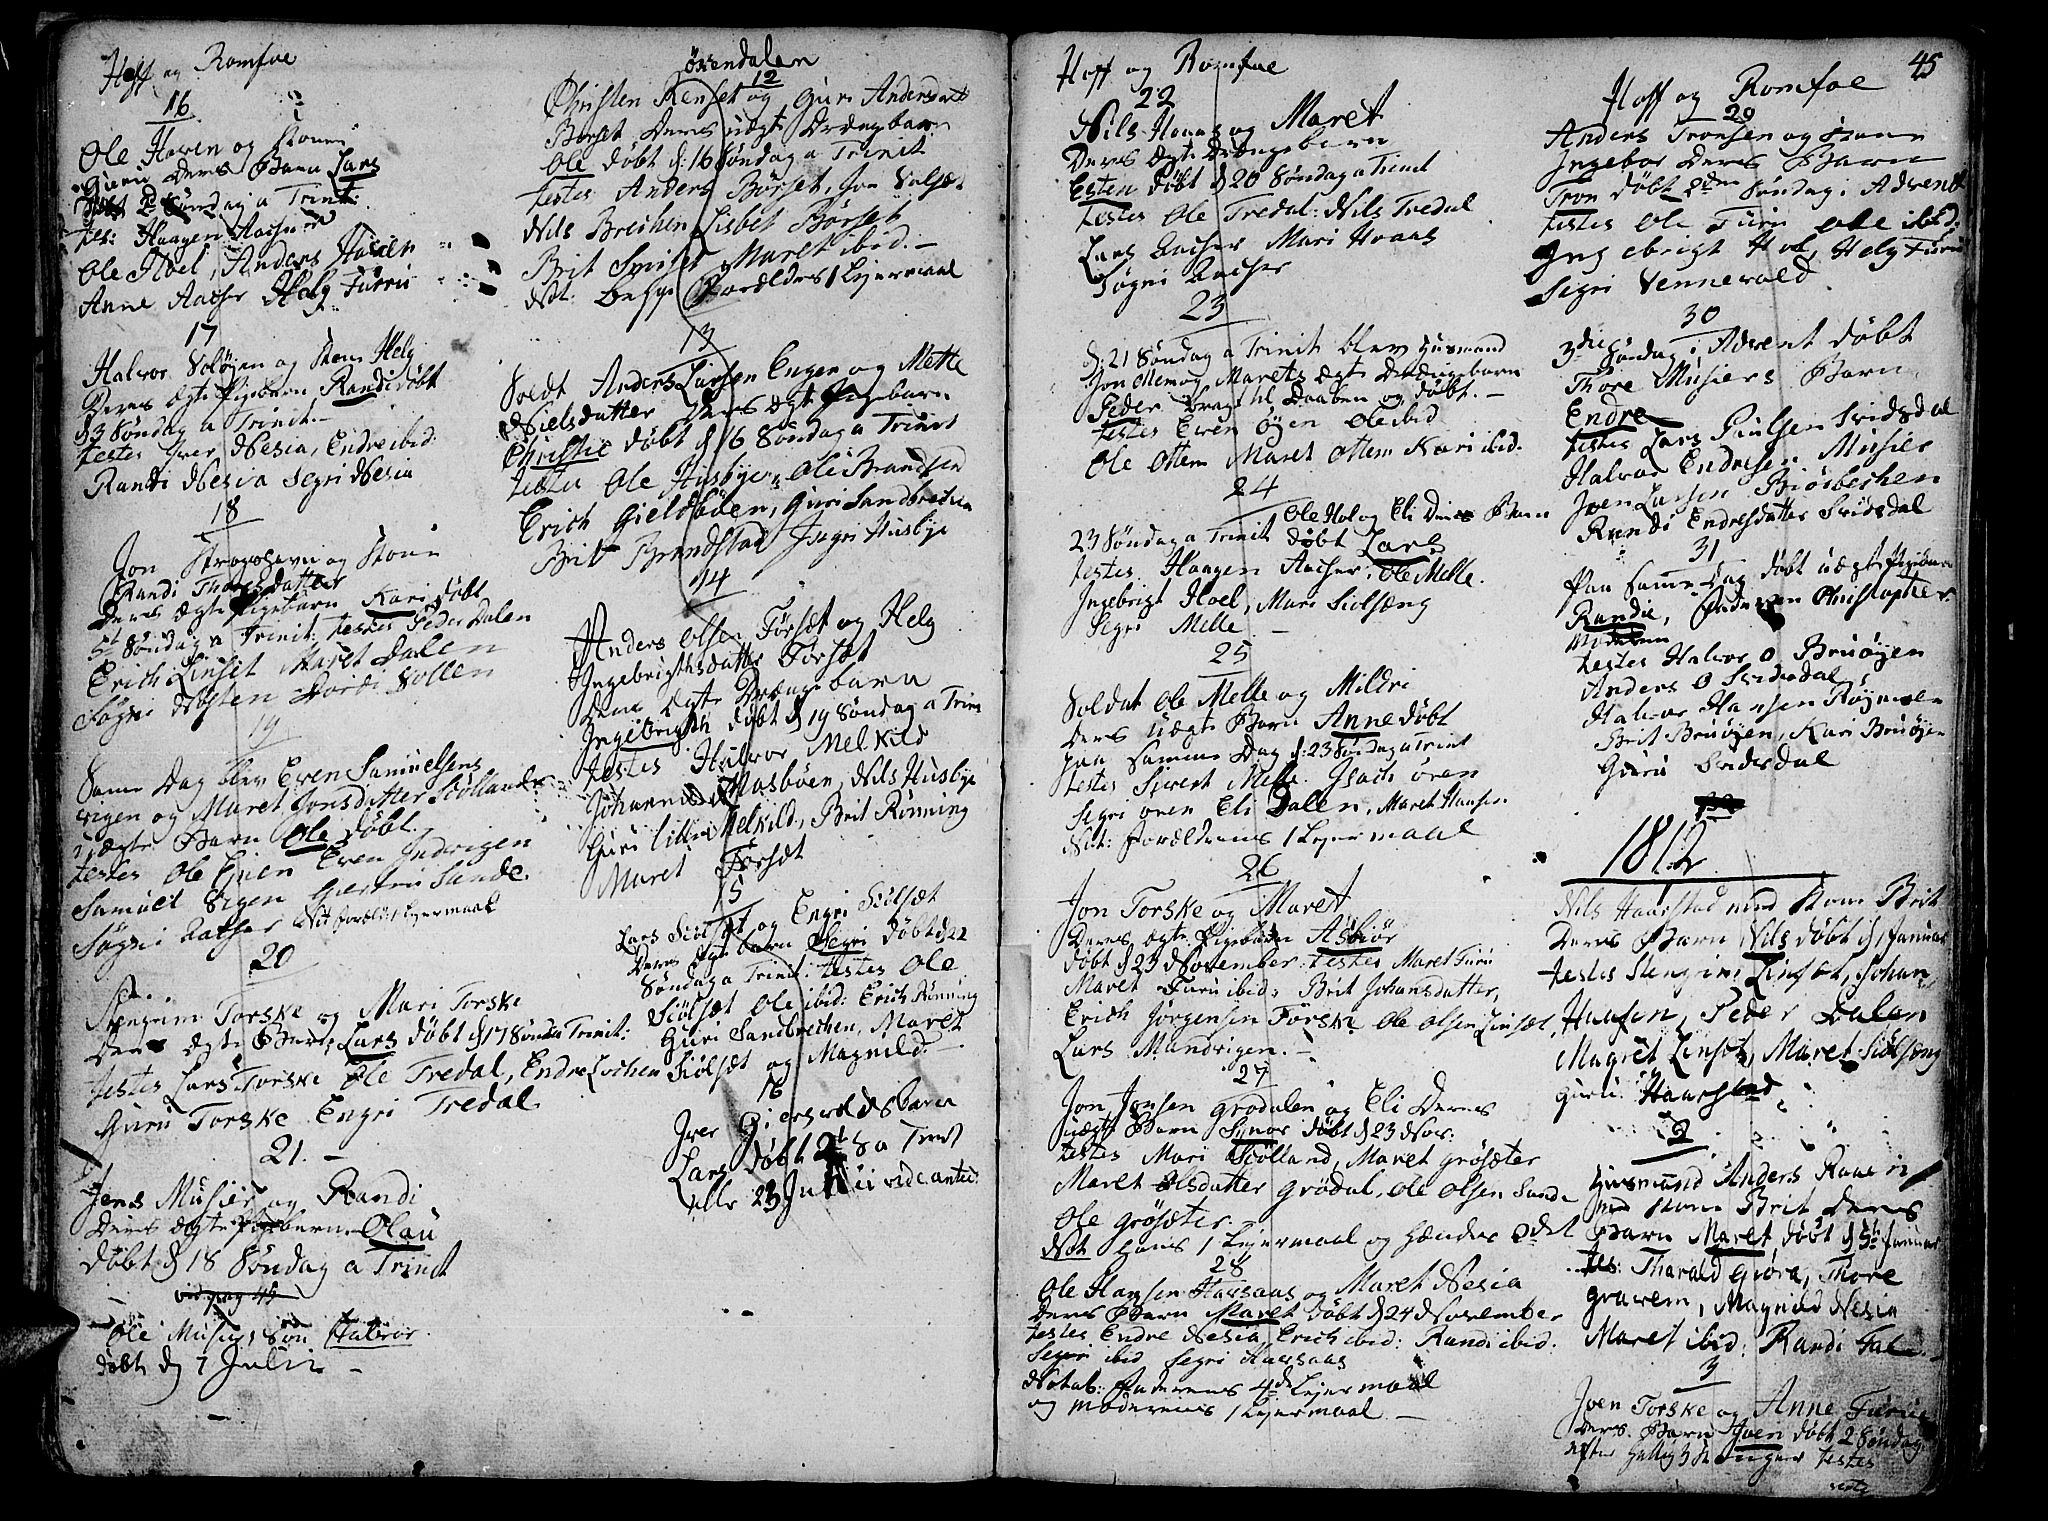 Hoff og Romfoe
16
Ole Hoven og Kone
Guru Deres Barn Lars
Døbt 2 Søndag a Trinit:
tes: Haagen Aachser
Ole Hoel, Anders Hoven
Anne Aachser Helg Furru
17
Halvor Soløyen og Kone Helg
Deres ægte Pigebarn Randi døbt
d 3 Søndag a Trinit.
testes Iver Nesia, Endre ibid:
Randi Nesia Segri Nesia
18
Jon og Kone
Randi Thoresdatter
Deres ægte Pigebarn Kari døbt
5te Søndag a Trinit: testes Peder Dalen
Erich Linset Maret Dalen
Søgni Dordi Vollen
19
Samme Dag blev Even Samuelsens
og Maret Jonsdatter
uægte Barn Ole døbt.
testes Ole Even
Samuel Gjertru Sande
Søgni Aachser Nit foræld: 1 Lejermaal
20
Stengrim Torske og Mari Torske
Deres ægte Barn Lars døbt d 17 Sønda Trinit:
testes Lars Torske Ole Tredal, Endre Lochen
Guru Torske Engri Tredal
21.
Jens Musier og Randi
Deres ægte Pigebarn Olau
døbt d 18 Søndag a Trinit
vid pag 45
Ole Musigs Søn Halvor
døbt d 7 Julii
Øxendalen
12
Christen Renset og Guri Andersdt
Børset Deres uægte Drængebarn
Ole døbt d: 16 Søndag a Trinit
testes Anders Børset, Jon
Nils Brechen Lisbet Børset
Brit Maret ibid.
Not: begge Forældres 1 Lejermaal
13
Soldt Anders Larsen Engen og Mette
Nielsdatter Deres ægte Pigebarn
Christie døbt d 16 Søndag a Trinit
testes Ole Husbye, Ole Brandsen
Erich Gieldbøen, Guri Sandbrechen
Brit Brandstad Ingri Husbye
14
Anders Olsen Forsæt og Helg
Ingebrigthsdatter Forsæt
Dene ægte Drænge barn
Ingebrigth døbt d 19 Søndag a Trini
testes Halvor Melkild
Johannes Mosbøen, Nils Husbye
Guri Melkild, Brit Rønning
Maret Forsæt
15
Lars Siølsæt og Engri Siølsæt
Deres Pige barn Segri døbt d 22
Søndag a Trinit: testes Ole
Siølsæt Ole ibid: Erich Rønning
Guri Sandbrechen, Maret
Siølsæt og Magnild.
16
Iver Giersvolds barn
Lars døbt 2 S a Trinit
eller 23 Julii vide antea:
Hoff og Romfoe
22
Nils Hoaas og Maret
Deres ægte Drængebarn
Esten døbt d 20 Søndag a Trinit
testes Ole Tredal: Nils Tredal
Lars Aachser Mari Hoaas
Søgni Aachser
23
d: 21 Søndag a Trinit blev Husmand
Jon Memog Marets ægte Drængebarn
Peder bragt til Daaben og døbt.
testes Even Øyen Ole ibid
Ole Ottem Maret Ottem Kari ibid.
24
Ole Hol og Eli Deres Barn
23 Søndag a Trinit døbt Lars
testes Haagen Aachser, Ole Melle.
Ingebrigt Hoel, Mari Siølsæng
Segri Melle
25
Soldat Ole Melle og Mildri
Deres uægte Barn Anne døbt
paa samme Dag d: 23 Søndag a Trinit
testes Sivert Melle. Isach Ören
Segri Ören Eli Dalen, Maret Hansen
Not: Forældrenes 1 Lejermaal
26
Jon Torske og Maret
Deres ægte Pigebarn Asbiør
døbt d 23 November: testes Maret Furu
Maret Furu ibid: Brit Johansdatter,
Erich Jørgensen Torske Ole Olsen Linsæt,
Lars Mandrigen.
27
Jon Jonsen Grødalen og Eli Deres
uægte Barn Synor døbt d 23 Nov:
testes Mari Siølland, Maret Grøsæter
Maret Olsdatter Grødal, Ole Olsen Sande
Ole Grøsæter.
Not Hans 1 Lejermaal og Hendes 2det
28
Ole Hansen Harsaas og Maret Nesia
Deres Barn Maret døbt d 24 November
testes Endre Nesia, Erich ibid: Randi ibid.
Segri ibid Segri Harsaas
Notab: Faderens 4de Lejermaal
og Moderens 1 Lejermaal
45
Hoff og Romfoe
29
Anders Tronsen og Kone
Ingebor Deres Barn
Tron døbt 2den Søndag i Advent
testes Ole Furu Ole ibid.
Ingebrigt Hol, Helg Furu
Segri Vennevold.
30
3die Søndag i Advent døbt
Thore Musiers Barn
Endre
testes Lars Paulsen Svidsdal
Halvor Endresen Musier
Joen Larsen Biørbechen
Randi Endresdatter Svidsdal
31
Paa samme Dag døbt uægte Pigebarn
Randie, Faderen Christopher
Moderen
testes Halvor O Bruøyen
Anders O Svidsdal,
Halvor Hansen Røymoen
Brit Bruøyen, Kari Bruøyen
Guru Svidsdal
1812
Nils Haarstad med Kone Brit
Deres Barn Nils døbt d 1 Januar
testes Stengrim Linsøt, Johan
Haasen, Peder Dalen
Magret Linsøt, Maret Siølsæng
Guru: Haarstad
2
Husmand Anders
med Kone Brit Deres
Barn Maret døbt d 5 Januar
tes: Tharald Giøra, Thore
Gravem, Magnild Nesia
Maret ibid: Randi Fale.
3
Joen Torske og Anne Furue
Deres Barn Joen døbt 2 Søndag
efter Hellig 3 K onger testes